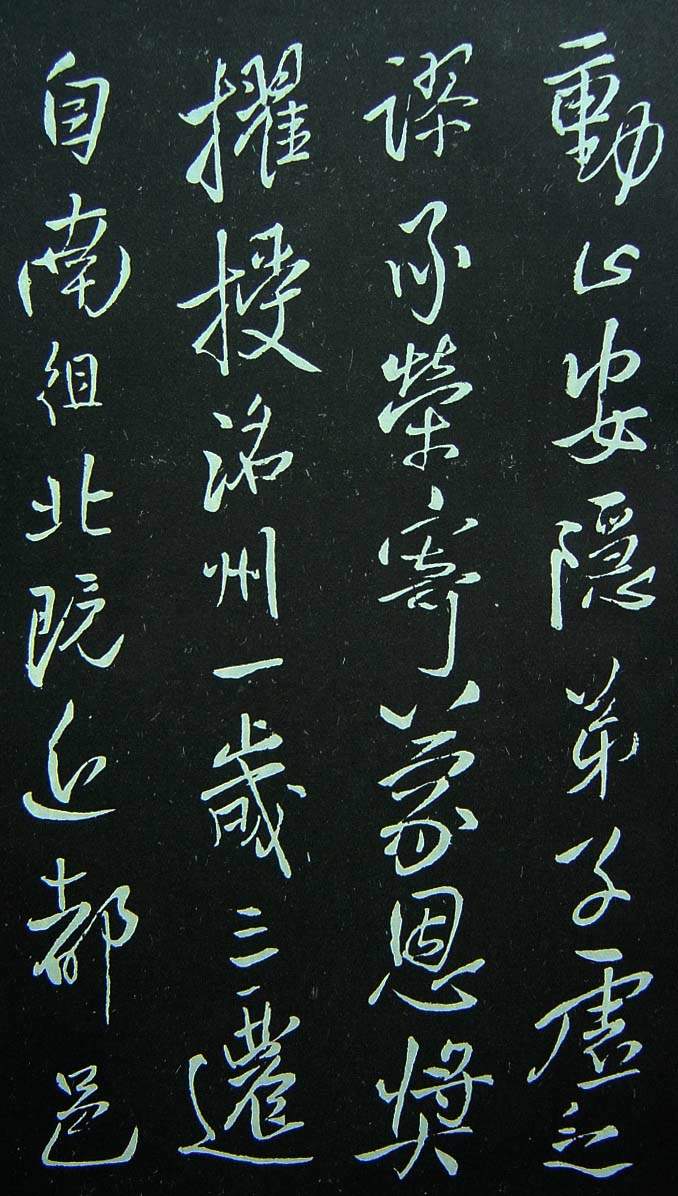 動止安隱弟子虛乏
謬承榮寄蒙恩獎
擢授洺州一歲三遷
自南徂北既近都邑